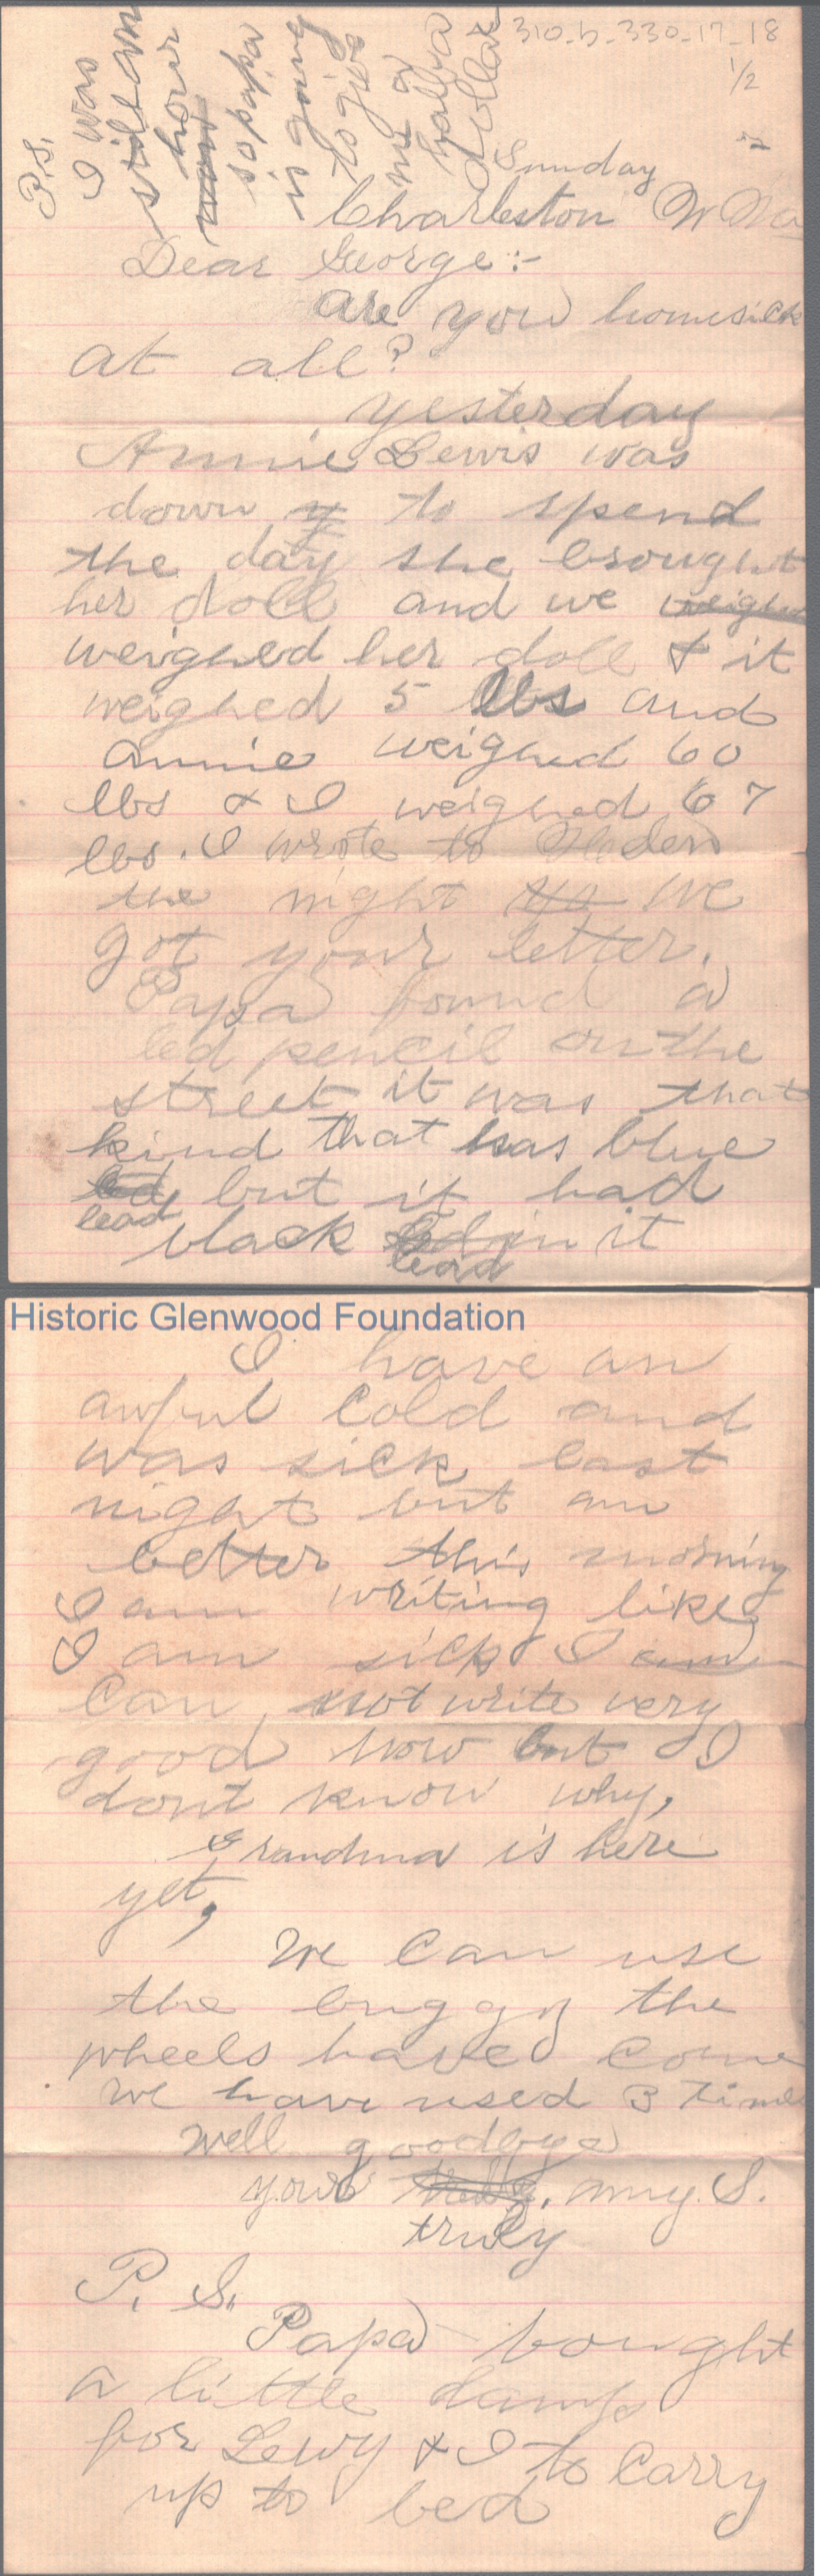 310-b-330-17-18
1/2
P.S.
I was
still an
hour
so papa
is going
to give
me a
half a
dollar
Sunday
Charleston W Va
Dear George:-
are you homesick
at all?
yesterday
Annie Lewis was
down to spend
the day she brought
her doll and we weighed
weighed her doll & it
weighed 5 lbs and
annie weighed 60
lbs & I weighed 67
lbs. I wrote to
the night we
got your letter.
Papa found a
led pencil on the
street it was that
kind that has blue
led but it had
lead
black led in it
lead
Historic Glenwood Foundation
I have an
awful cold and
was sick last
night but am
better this morning
I am writing like
I am sick I am
can not write very
good now but I
dont know why,
Grandma is here
yet,
We can use
the buggy the
wheels have come
we have used 3 times
Well goodbye
your amy. S.
truly
P. S.
Papa bought
a little lamp
for Lewy & I to carry
up to bed